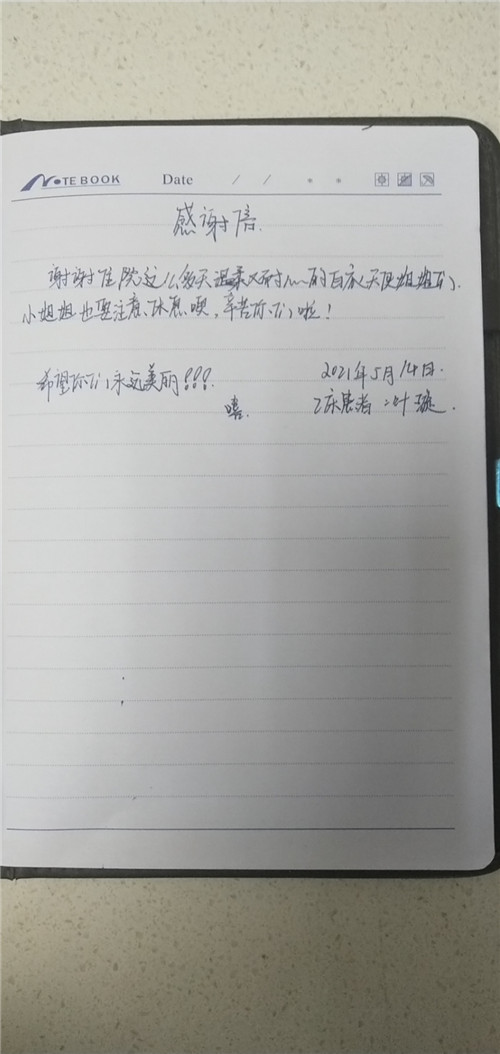 NOTEBOOK Date / / * *
感谢信.
谢谢住院这么多天温柔又耐心的白衣天使姐姐们.
小姐姐也要注意休息噢,辛苦你们啦!
希望你们永远美丽!!! 2021年5月14日.
嘻. 2床患者:叶璇.